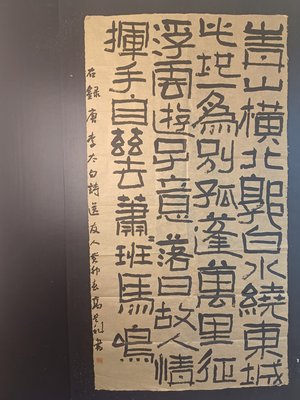 青山橫北郭白水繞東城
此地一為別孤蓬萬里征
浮雲遊子意落日故人情
揮手自茲去蕭班馬鳴
右録唐李太白詩送友人癸卯高書